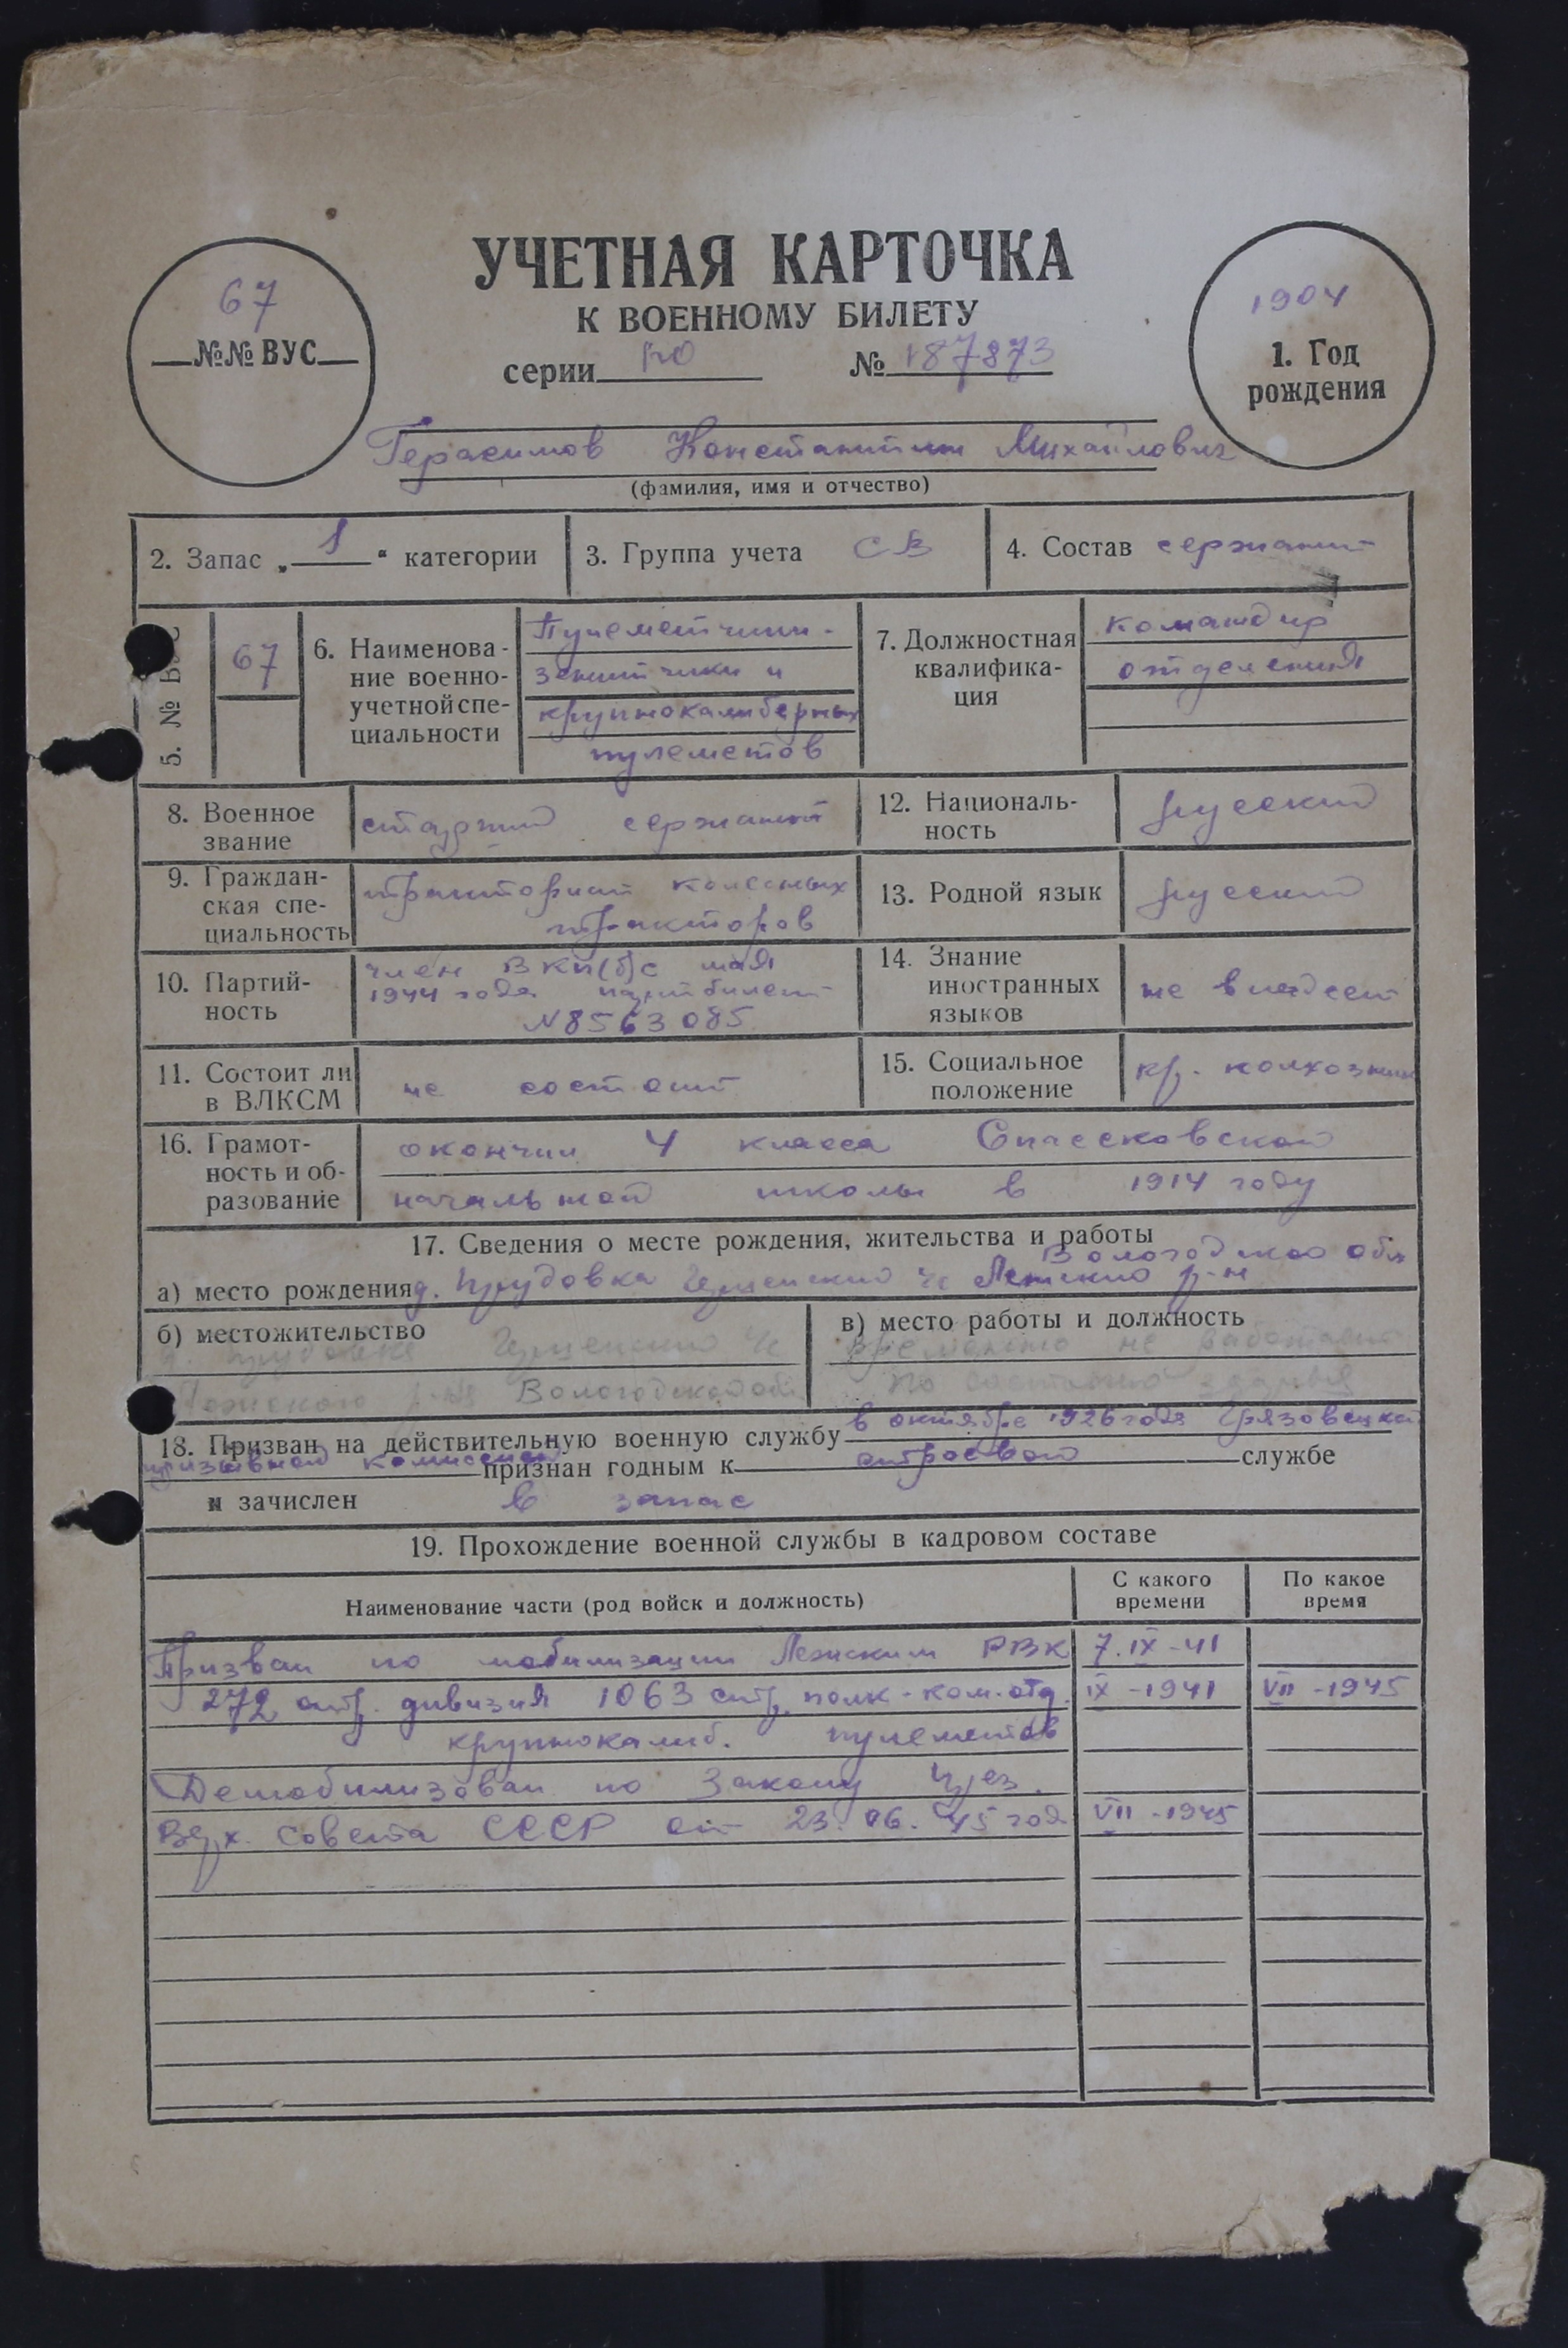 УЧЕТНАЯ КАРТОЧКА
К ВОЕННОМУ БИЛЕТУ
серии № 187873
67
№№ ВУС
1904
1. Год
рождения
Герасимов Константин Михайлович
(фамилия, имя и отчество)
2. Запас „ 1 “ категории
3. Группа учета СВ
4. Состав сержант
5. №
67
6. Наименова-
ние военно-
учетной спе-
циальности
Пулеметчики-
зенитчики и
крупнокалиберных
пулеметов
7. Должностная
квалифика-
ция
командир
отделения
8. Военное
звание
старший сержант
12. Националь-
ность
русский
9. Граждан-
ская спе-
циальность
тракторист колесных
тракторов
13. Родной язык
русский
10. Партий-
ность
член ВКП(б) с мая
1944 года партбилет
N 8563085
14. Знание
иностранных
языков
не владеет
11. Состоит ли
в ВЛКСМ
не состоит
15. Социальное
положение
кр. колхозник
16. Грамот-
ность и об-
разование
окончил 4 класса Спасековской
начальной школы в 1914 году
17. Сведения о месте рождения, жительства и работы
Вологодской обл
а) место рождения д. Прудовка с/с Лежский р-н
б) местожительство
с/с
р-на Вологодской обл.
в) место работы и должность
временно не работает
по состоянию здоровья
18. Призван на действительную военную службу в октябре 1926 года Грязовецкой
призывной комиссией признан годным к строевой службе
и зачислен в запас
19. Прохождение военной службы в кадровом составе
Наименование части (род войск и должность)
С какого
времени
По какое
время
Призван по мобилизации Лежским РВК 7.IX-41
272 стр. дивизия 1063 стр. полк - ком. отд. IX-1941 VII-1945
крупнокалиб. пулеметов
Демобилизован по Закону През.
Верх. Совета СССР от 23.06.45 год VII-1945